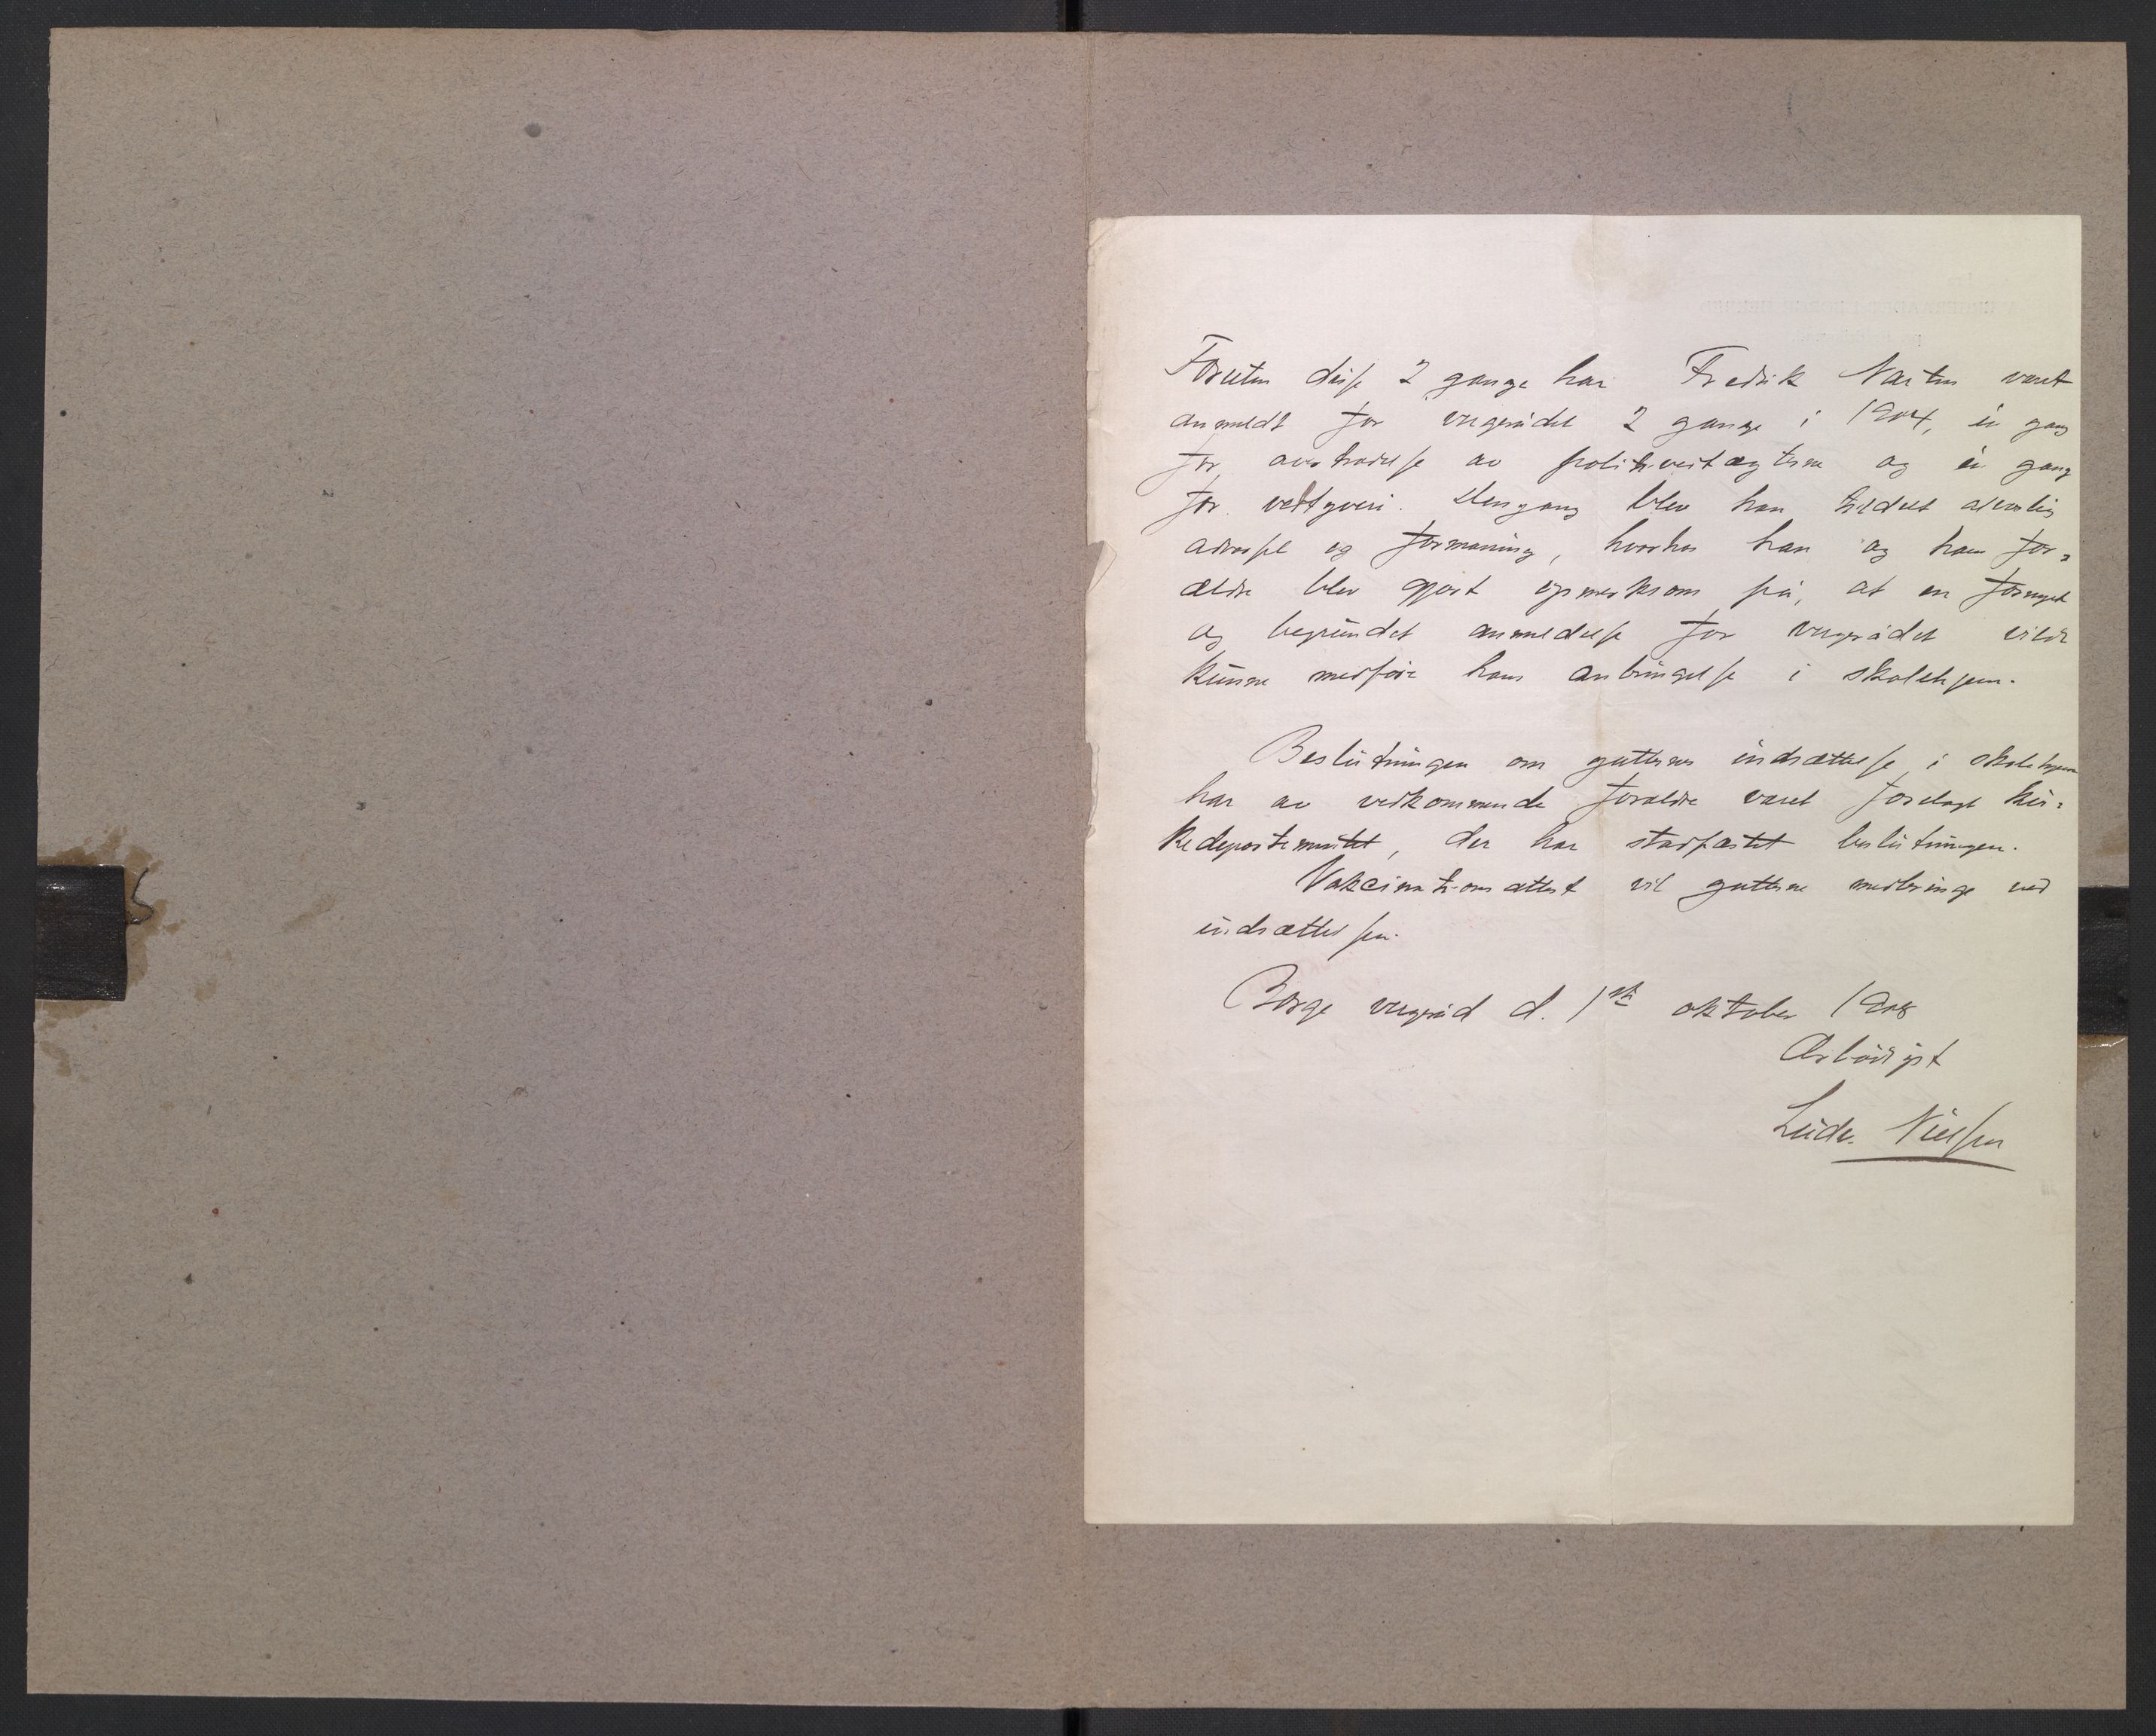 Foruten disse 2 gange har Fredrik Martin været
anmeldt for vergerådet 2 gange i 1904, én gang
for overtrædelse av politivedtægterne og én gang
for vedtyveri. Dengang blev han tildelt alvorlig
advarsel og formaning, hvorhos han og hans for-
ældre blev gjort opmerksom på, at en fornyet
og begrundet anmeldelse for vergerådet vilde
kunne medføre hans anbringelse i skolehjem.
Beslutningen om gutternes indsættelse i skolehjem
har av vedkommende forældre været forelagt Kir-
kedepartementet, der har stadfæstet beslutningen.
Vakcinationsattest vil gutterne medbringe ved
indsættelsen.
Borge vergeråd d. 1ste oktober 1908
Ærbødigst
Ludv. Nielsen